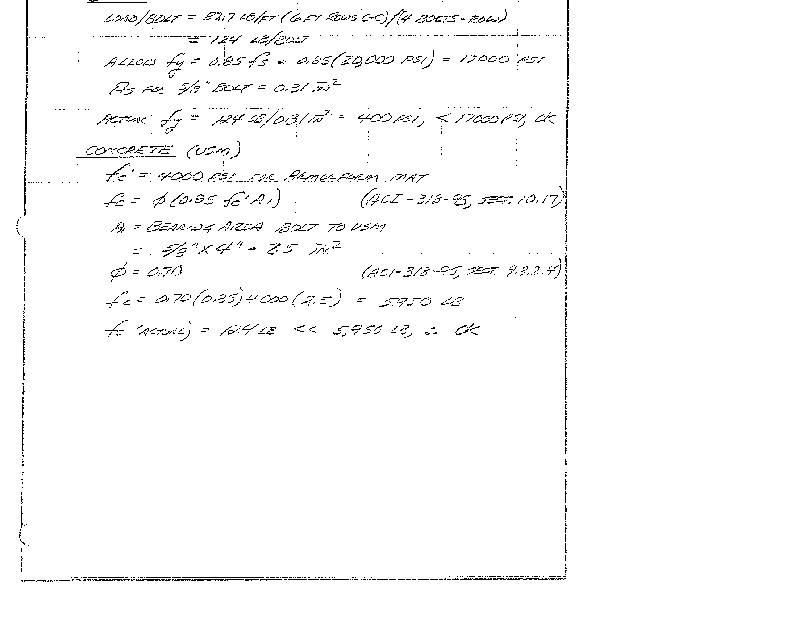 LOAD/BOLT = 82.7 LB/FT (6 FT ROWS C-C)/(4 BOLTS-ROW)
= 124 LB/BOLT
ALLOW fy = 0.85 fs = 0.85(20,000 PSI) = 17000 PSI
As FOR 5/8" BOLT = 0.31 IN²
ACTUAL fy = 124 LB/0.31 IN² = 400 PSI, < 17000 PSI, OK
CONCRETE (USM)
fc' = 4000 PSI FOR ARMORFORM MAT
fc = φ(0.85 fc' A1) (ACI-318-95, SECT. 10.17)
A1 = BEARING AREA BOLT TO USM
= 5/8" X 4" = 2.5 IN²
φ = 0.70 (ACI-318-95, SECT. 9.3.2.4)
fc = 0.70(0.85)4000(2.5) = 5950 LB
fc (ACTUAL) = 124 LB << 5,950 LB, ∴ OK